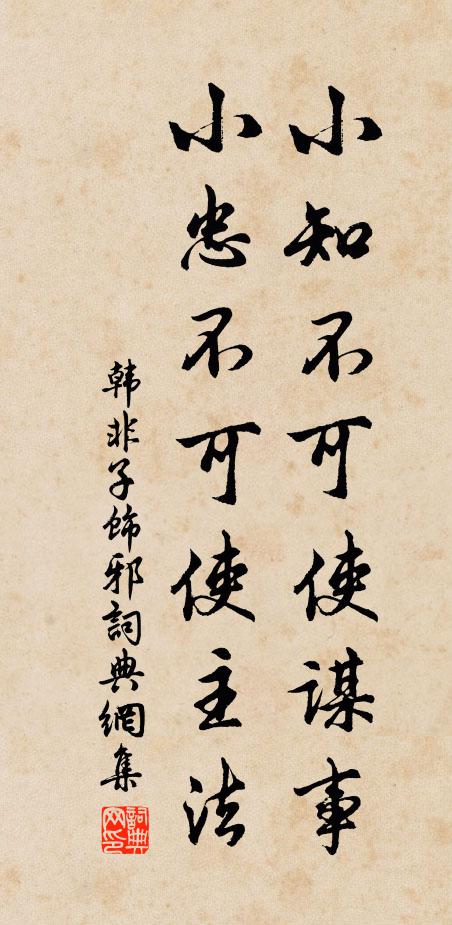 小知不可使謀事
小忠不可使主法
韩非子飾邪詞典網集
詞典网印